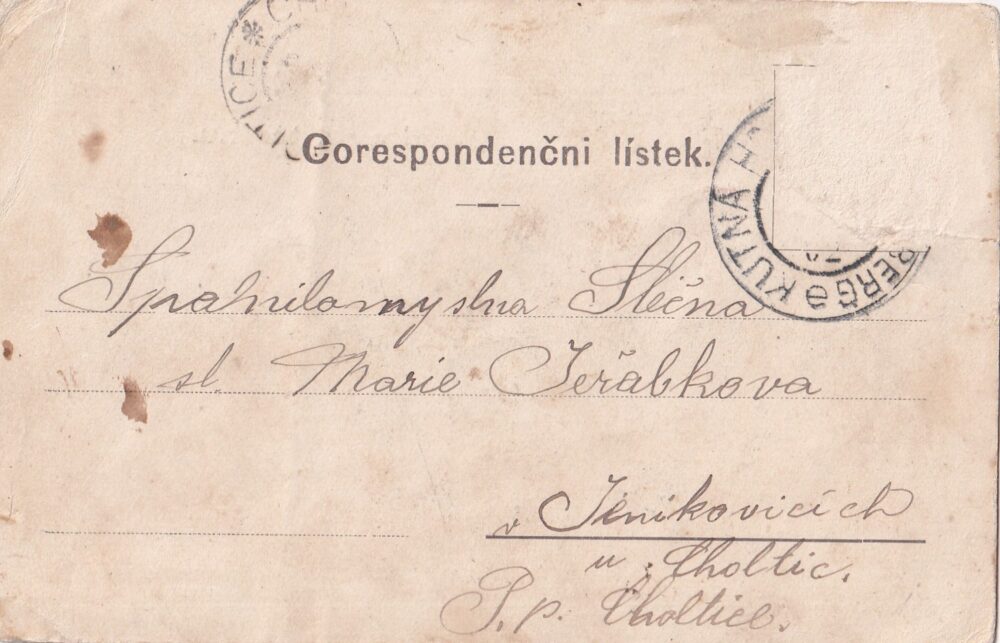 Corespondenčni lístek.
KUTNÁ
BERG
Spanilomyslna Slečna
sl. Marie Jeřábkova
v Jenikovicích
u Choltic.
P. p. Choltice.